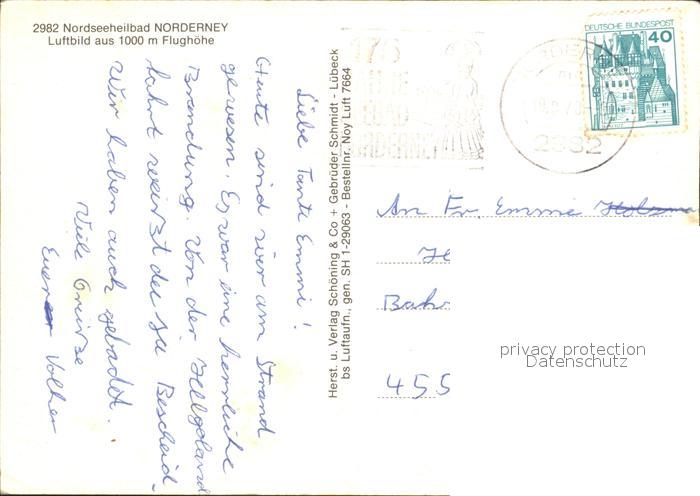 2982 Nordseeheilbad NORDERNEY
Luftbild aus 1000 m Flughöhe
Liebe Tante Emmi!
Heute sind wir am Strand
gewesen. Es war eine herrliche
Brandung. Von der Helgoland
fahrt weißt du ja Bescheid.
Wir haben auch gebadet.
Viele Grüße
Euer Volker
Herst. u. Verlag Schöning & Co + Gebrüder Schmidt - Lübeck
bs Luftaufn., gen. SH 1-29063 - Bestellnr. Noy Luft 7664
DEUTSCHE BUNDESPOST
40
2982
An Fr. Emmi
Bah
455
privacy protection
Datenschutz